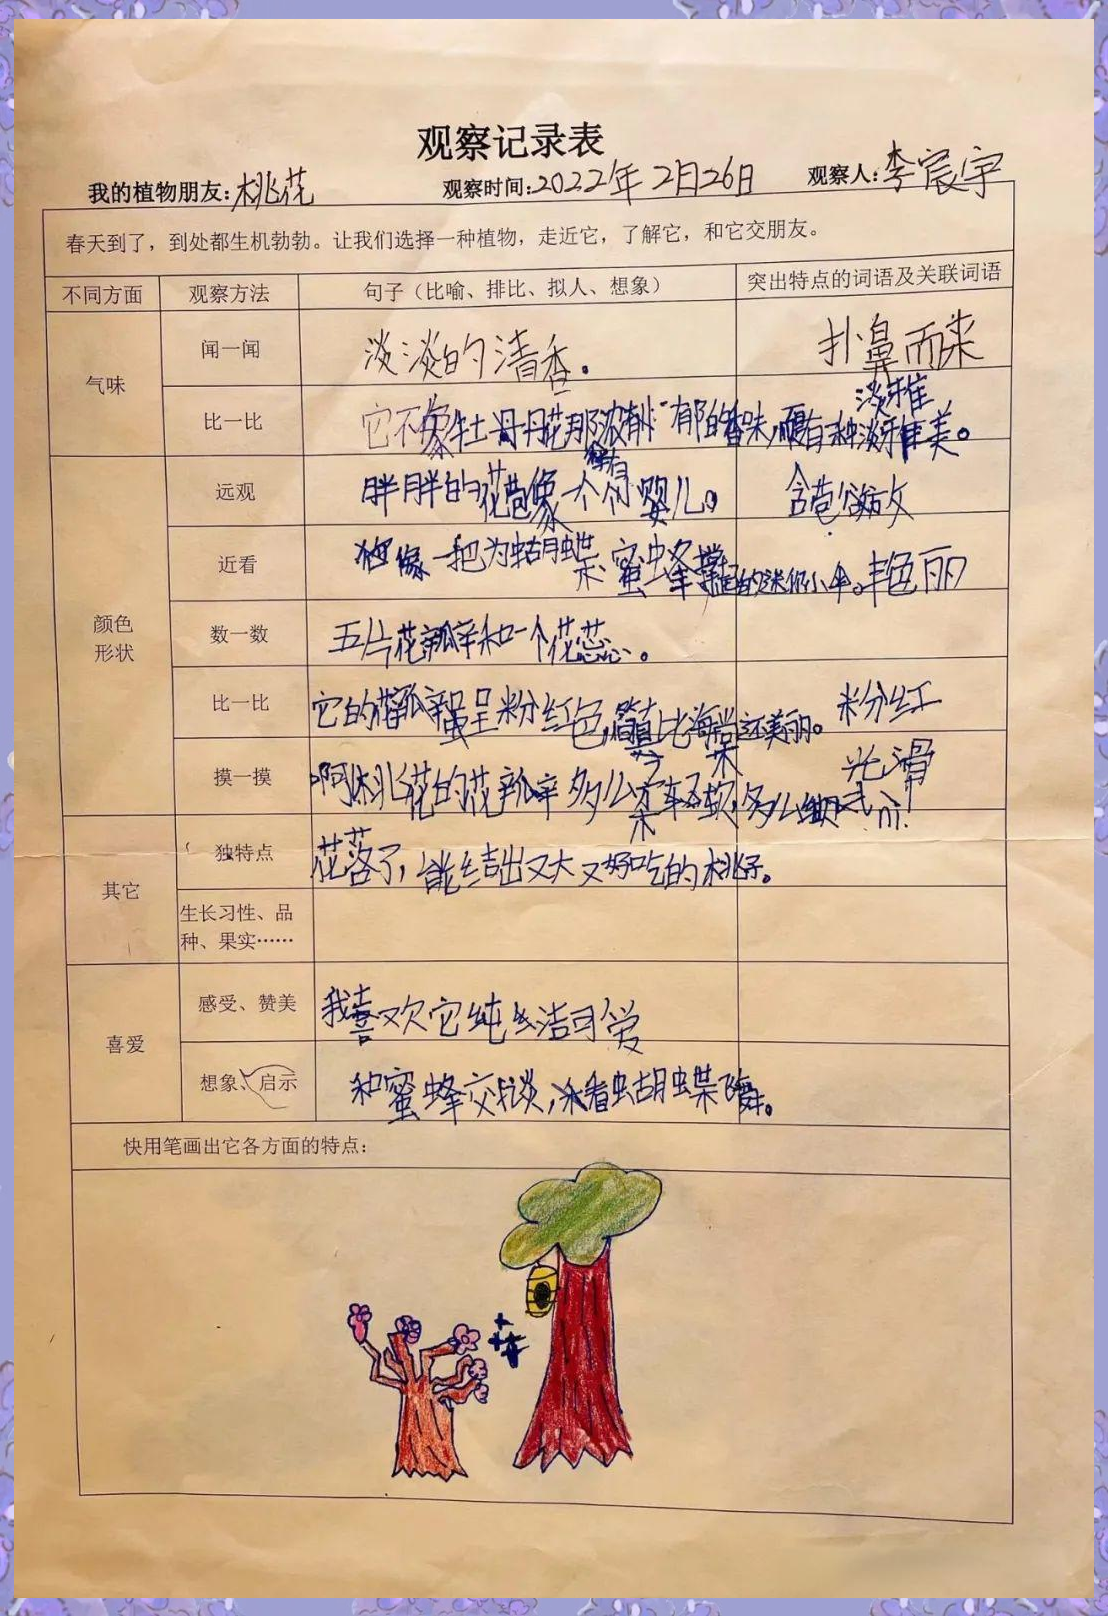 观察记录表
我的植物朋友:桃花 观察时间:2022年2月26日 观察人:李宸宇
春天到了，到处都生机勃勃。让我们选择一种植物，走近它，了解它，和它交朋友。
不同方面 观察方法 句子（比喻、排比、拟人、想象） 突出特点的词语及关联词语
气味
闻一闻 淡淡的清香。 扑鼻而来
淡雅
比一比 它不像牡丹花那浓郁的香味,而有种淡雅美。
颜色
形状
远观 胖胖的花苞像一个个小婴儿。 含苞欲放
近看 像一把为蝴蝶、蜜蜂撑起的迷你小伞。 艳丽
数一数 五片花瓣和一个花蕊。
比一比 它的花瓣呈粉红色,简直比海棠还美丽。 粉红
摸一摸 啊桃花的花瓣多么柔软,多么细 光滑
其它
独特点 花落了,能结出又大又好吃的桃子。
生长习性、品
种、果实……
喜爱
感受、赞美 我喜欢它纯洁可爱
想象、启示 和蜜蜂交谈,看蝴蝶舞。
快用笔画出它各方面的特点: